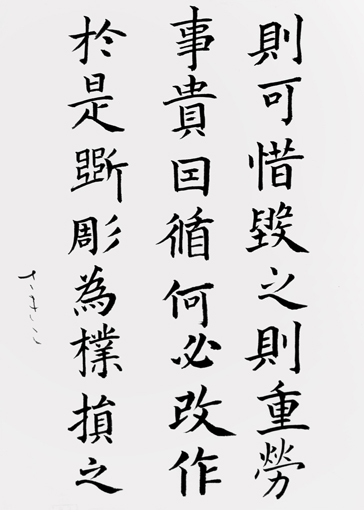 則可惜毀之則重勞
事貴因循何必改作
於是斲彫為樸損之